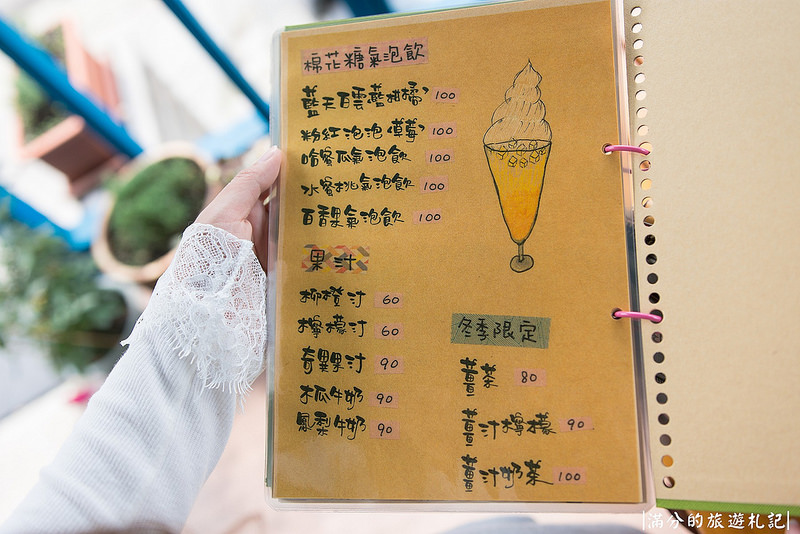 棉花糖氣泡飲
藍天白雲(藍柑橘) 100
粉紅泡泡(莓莓) 100
哈蜜瓜氣泡飲 100
水蜜桃氣泡飲 100
百香果氣泡飲 100
果汁
柳橙汁 60
檸檬汁 60
奇異果汁 90
木瓜牛奶 90
鳳梨牛奶 90
冬季限定
薑茶 80
薑汁檸檬 90
薑汁奶茶 100
|滿分的旅遊札記|